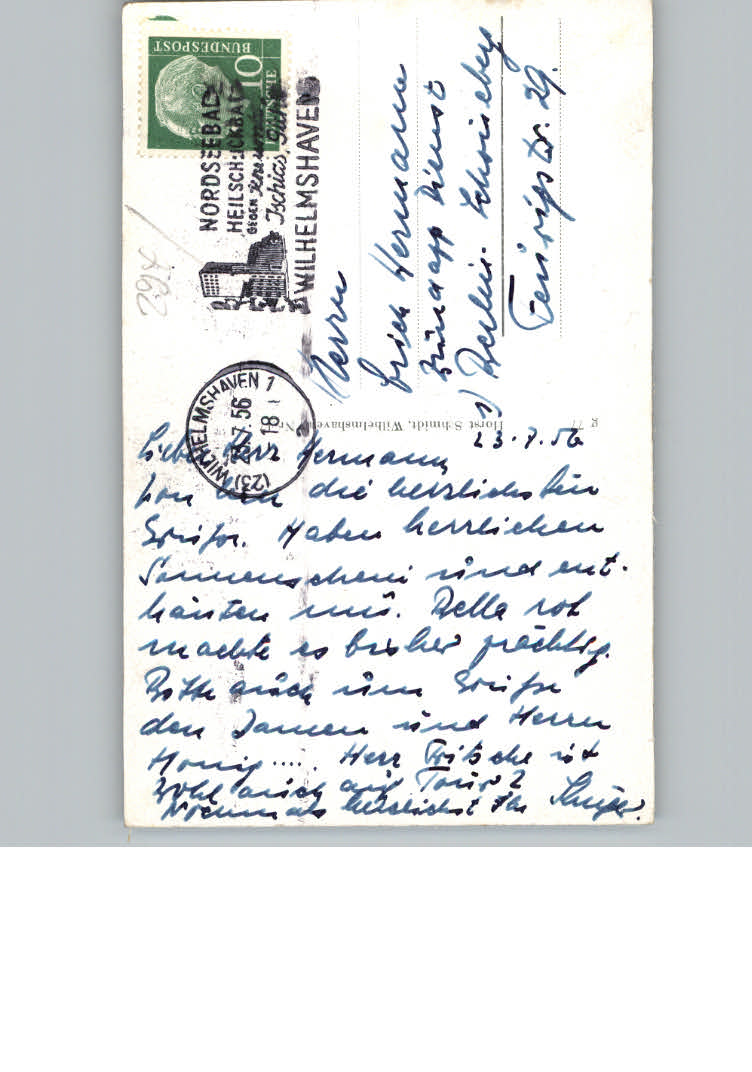 DEUTSCHE
BUNDESPOST
10
NORDSEEBAD
HEILSCHLICKBAD
GEGEN Rheuma
Ischias, Gicht
WILHELMSHAVEN
294
(23) WILHELMSHAVEN 1
23.7.56
18
Herrn
Erich Hermann
Zündapp Dienst
1) Berlin-Schöneberg
Feurigstr. 29.
g 77
Horst Schmidt, Wilhelmshaven Nr.
23.7.56
Lieber Herr Hermann,
von die herzlichsten
Grüße. Haben herrlichen
Sonnenschein und ent-
häuten uns. Bella rot
machte es bisher prächtig.
Bitte auch um Grüße
den Damen und Herrn
Honig ..... Herr Fritsche ist
wohl auch auf Tour?
Nochmals herzlichst Ihr